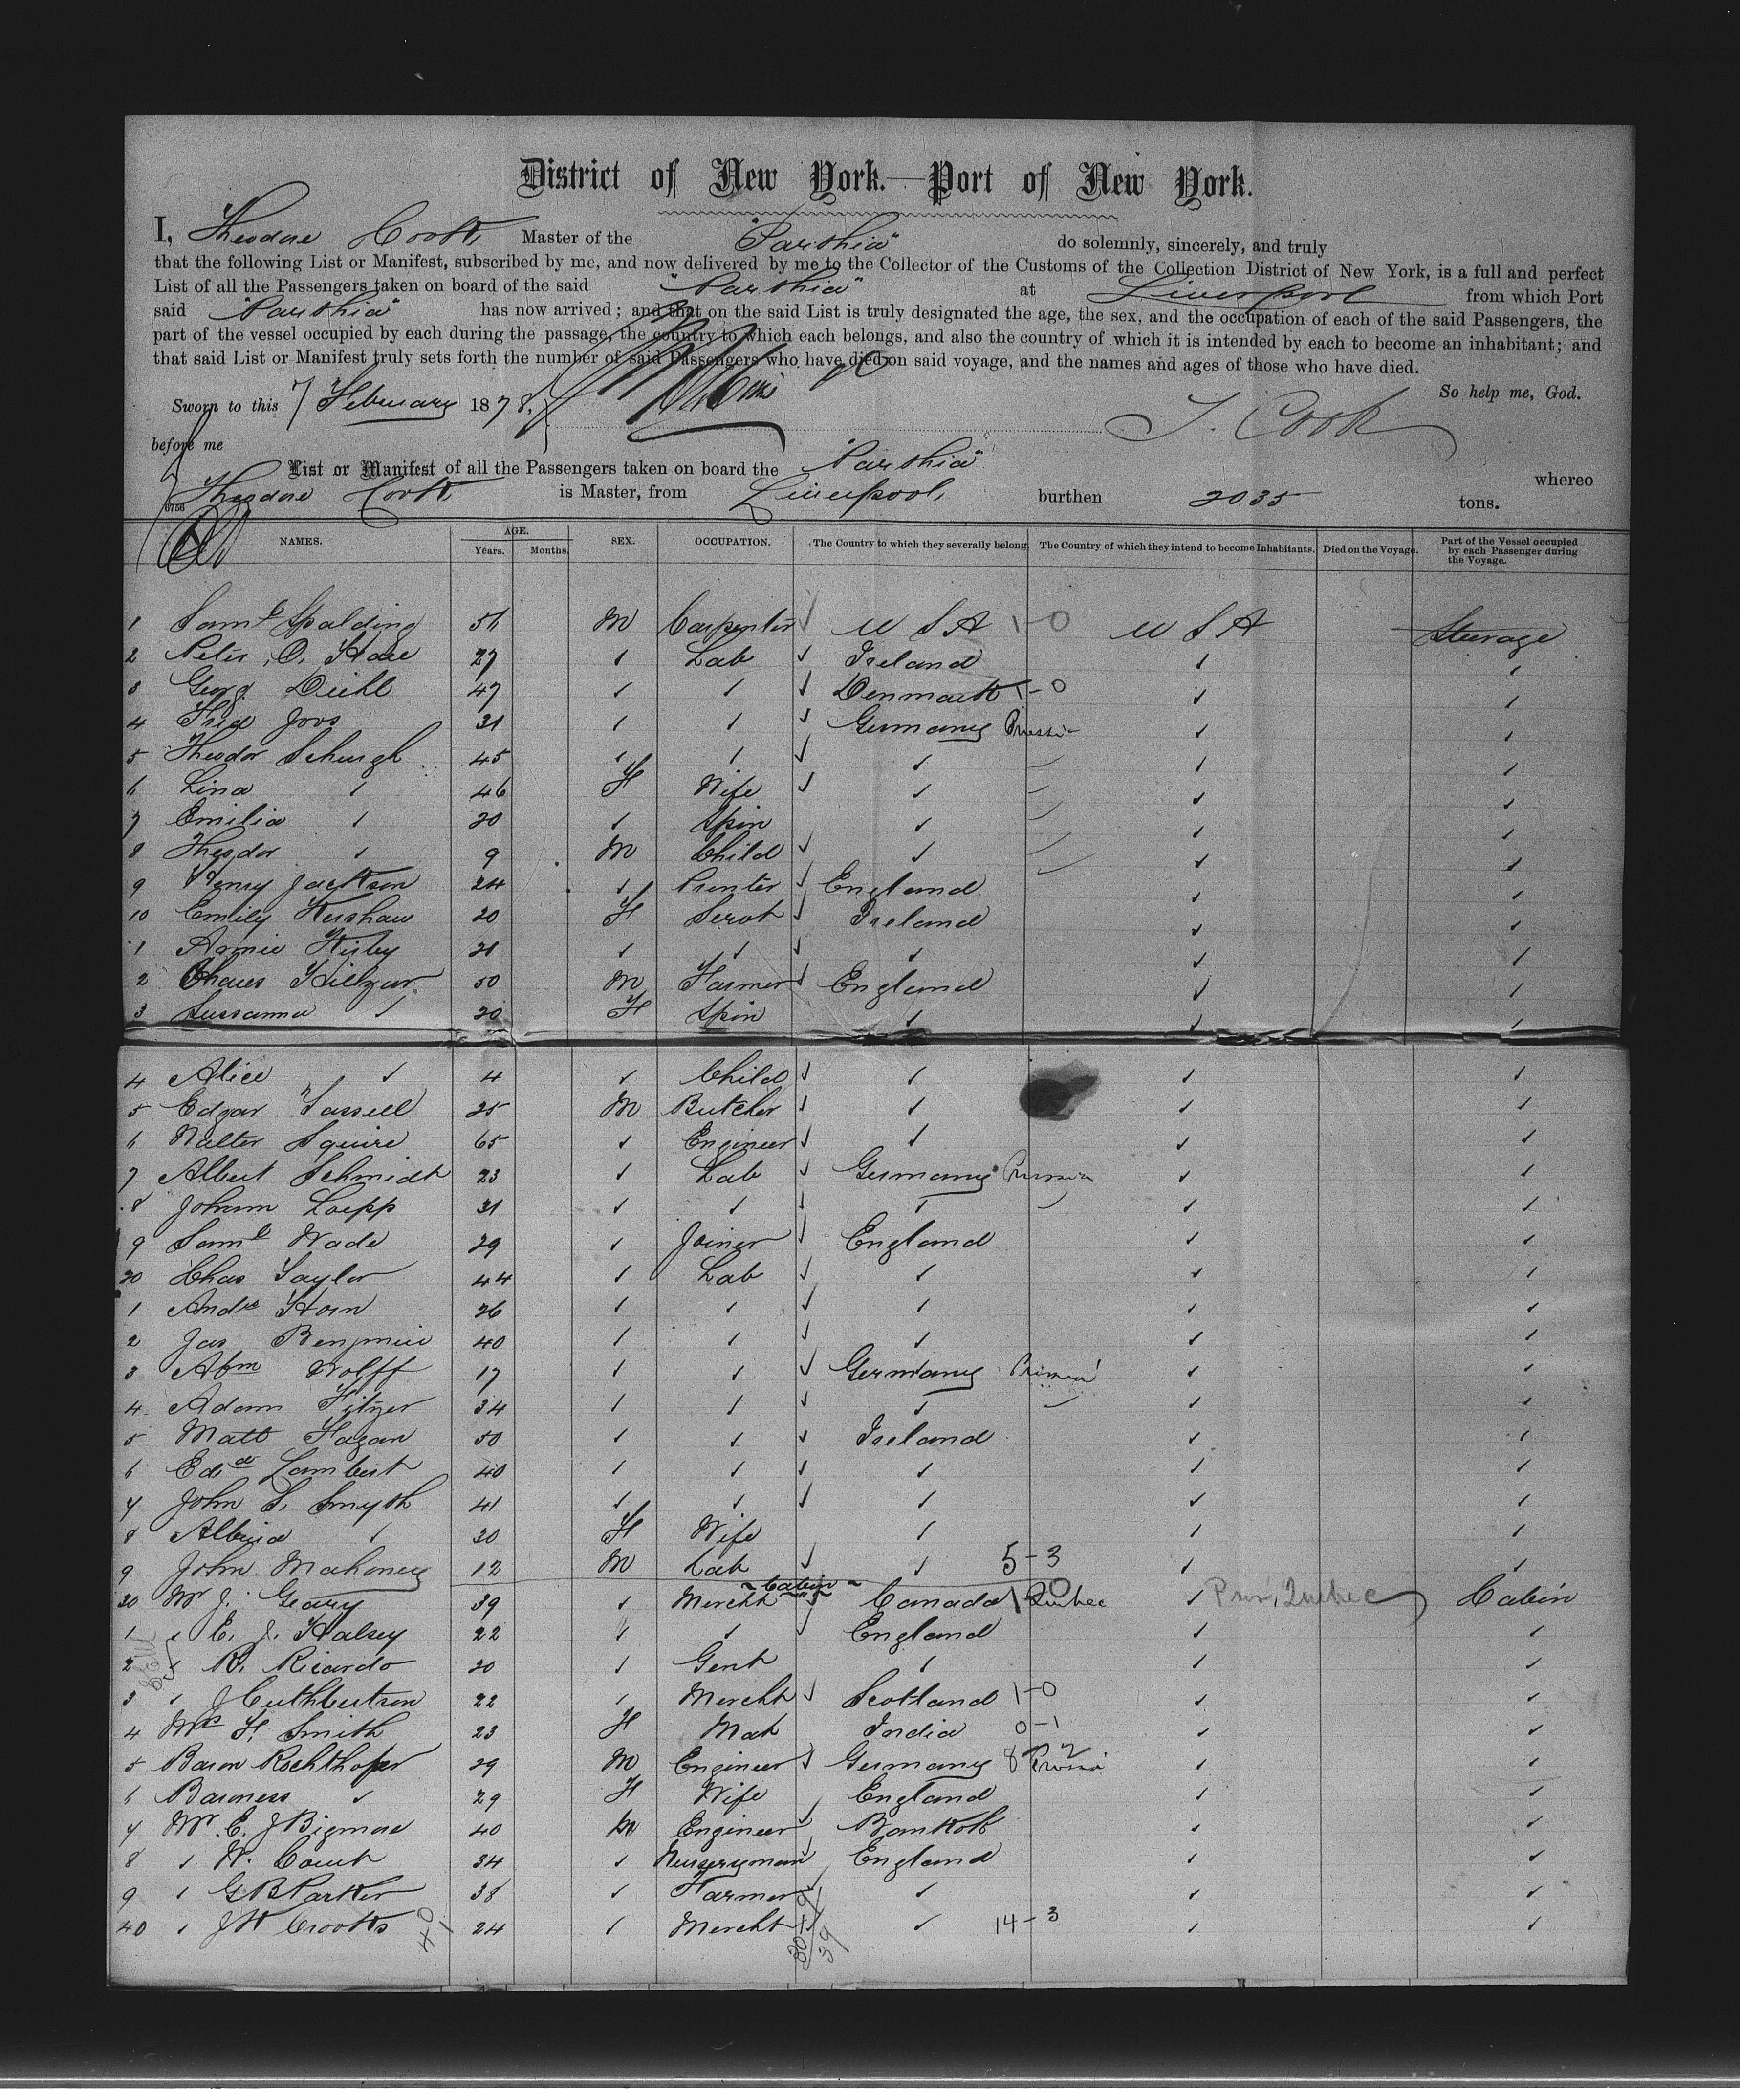 District of New York.—Port of New York.
I, Theodore Cook Master of the "Parthia" do solemnly, sincerely, and truly
that the following List or Manifest, subscribed by me, and now delivered by me to the Collector of the Customs of the Collection District of New York, is a full and perfect
List of all the Passengers taken on board of the said "Parthia" at Liverpool from which Port
said "Parthia" has now arrived; and that on the said List is truly designated the age, the sex, and the occupation of each of the said Passengers, the
part of the vessel occupied by each during the passage, the country to which each belongs, and also the country of which it is intended by each to become an inhabitant; and
that said List or Manifest truly sets forth the number of said Passengers who have died on said voyage, and the names and ages of those who have died.
So help me, God.
Sworn to this 7 February 1878. T. Cook
before me
List or Manifest of all the Passengers taken on board the "Parthia" whereo
Theodore Cook is Master, from Liverpool, burthen 2035 tons.
6756
NAMES. AGE. Years. Months. SEX. OCCUPATION. The Country to which they severally belong. The Country of which they intend to become Inhabitants. Died on the Voyage. Part of the Vessel occupied by each Passenger during the Voyage.
1 Saml Spalding 56 M Carpenter ✓ U S A 1-0 U S A Steerage
2 Peter O. Hare 27 ✓ Lab ✓ Ireland ✓ ✓
3 Georg Diehl 47 ✓ ✓ ✓ Denmark 1-0 ✓ ✓
4 Fried Joos 31 ✓ ✓ ✓ Germany Prussia ✓ ✓
5 Theodor 45 ✓ ✓ ✓ ✓ ✓ ✓
6 Lina ✓ 46 F Wife ✓ ✓ ✓ ✓
7 Emilia ✓ 20 ✓ Spin ✓ ✓ ✓
8 Theodor ✓ 9 M Child ✓ ✓ ✓ ✓
9 Henry Jackson 24 ✓ Printer ✓ England ✓ ✓
10 Emily Kershaw 20 F Servt ✓ Ireland ✓ ✓
1 Annie Kirby 21 ✓ ✓ ✓ ✓ ✓ ✓
2 50 M Farmer ✓ England ✓ ✓
3 Sussanna ✓ 20 F Spin ✓ ✓ ✓
4 Alice ✓ 4 ✓ Child ✓ ✓ ✓ ✓
5 Edgar 25 M Butcher ✓ ✓ ✓ ✓
6 Walter Squire 65 ✓ Engineer ✓ ✓ ✓ ✓
7 Albert Schmidt 23 ✓ Lab ✓ Germany Prussia ✓ ✓
8 Johann Loepp 31 ✓ ✓ ✓ ✓ ✓ ✓
9 Saml Wade 29 ✓ Joiner ✓ England ✓ ✓
20 Chas Taylor 44 ✓ Lab ✓ ✓ ✓ ✓
1 Andw Horn 26 ✓ ✓ ✓ ✓ ✓ ✓
2 Jas Benjmin 40 ✓ ✓ ✓ ✓ ✓ ✓
3 Abm Wolff 17 ✓ ✓ ✓ Germany Prussia ✓ ✓
4 Adam 34 ✓ ✓ ✓ ✓ ✓ ✓
5 Matt Fagan 50 ✓ ✓ ✓ Ireland ✓ ✓
6 Edwd Lambert 40 ✓ ✓ ✓ ✓ ✓ ✓
7 John S. Smyth 41 ✓ ✓ ✓ ✓ ✓ ✓
8 Albina ✓ 30 F Wife ✓ ✓ ✓
9 John Mahoney 12 M Lab ✓ ✓ 5-3 ✓ ✓
~Cabin~
30 Mr J. Geary 39 ✓ Mercht ✓ Canada 1-0 Quebec ✓ Prov, Quebec Cabin
1 ✓ C. J. Halsey 22 ✓ ✓ ✓ England ✓ ✓
2 ✓ R. Ricardo 20 ✓ Gent ✓ ✓ ✓
3 ✓ J Cuthbertson 22 ✓ Mercht ✓ Scotland 1-0 ✓ ✓
4 Mrs H. Smith 23 F Mat India 0-1 ✓ ✓
5 Baron Richthofer 29 M Engineer ✓ Germany 8-2 Prussia ✓ ✓
6 Baroness ✓ 29 F Wife England ✓ ✓
7 Mr E. J Bigmore 40 M Engineer ✓ Bankok ✓ ✓
8 ✓ W. Court 34 ✓ Nurseryman ✓ England ✓ ✓
9 ✓ G B Parker 38 ✓ Farmer ✓ ✓ ✓ ✓
40 ✓ J H Crooks 24 ✓ Mercht ✓ ✓ 14-3 ✓ ✓
40
39